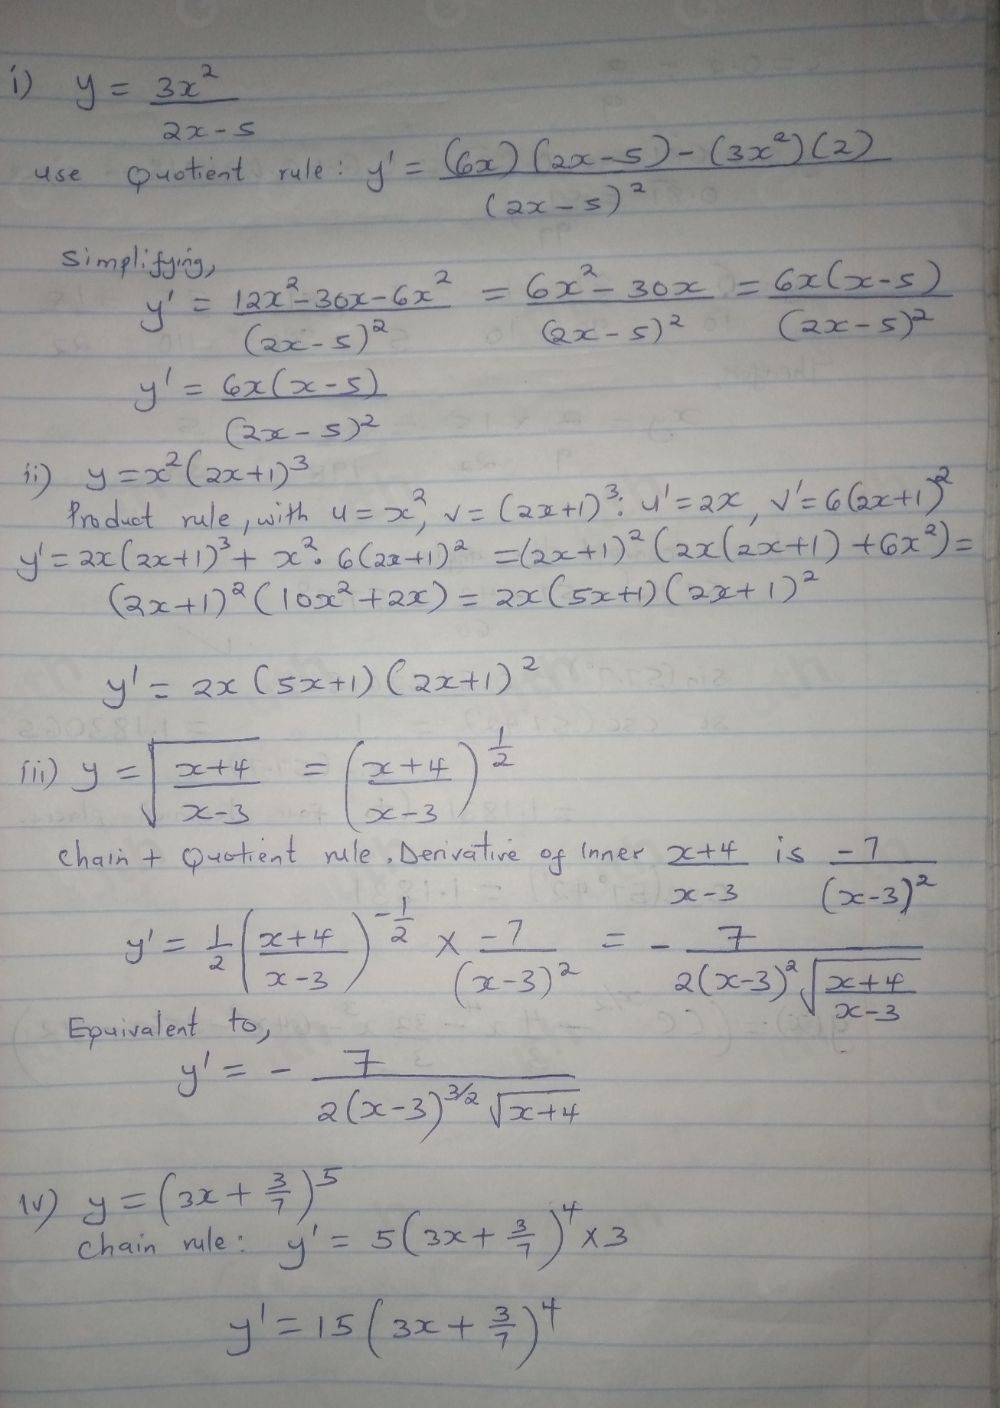 i) y = 3x²/(2x-5)
use Quotient rule: y' = ((6x)(2x-5)-(3x²)(2))/(2x-5)²
Simplifying,
y' = (12x²-30x-6x²)/(2x-5)² = (6x²-30x)/(2x-5)² = 6x(x-5)/(2x-5)²
y' = 6x(x-5)/(2x-5)²
ii) y = x²(2x+1)³
Product rule, with u = x², v = (2x+1)³: u' = 2x, v' = 6(2x+1)²
y' = 2x(2x+1)³ + x²·6(2x+1)² = (2x+1)²(2x(2x+1)+6x²) =
(2x+1)²(10x²+2x) = 2x(5x+1)(2x+1)²
y' = 2x(5x+1)(2x+1)²
iii) y = √((x+4)/(x-3)) = ((x+4)/(x-3))^(1/2)
Chain + Quotient rule. Derivative of inner (x+4)/(x-3) is -7/(x-3)²
y' = 1/2((x+4)/(x-3))^(-1/2) × -7/(x-3)² = -7/(2(x-3)²√((x+4)/(x-3)))
Equivalent to,
y' = -7/(2(x-3)^(3/2)√(x+4))
iv) y = (3x+3/7)⁵
Chain rule: y' = 5(3x+3/7)⁴×3
y' = 15(3x+3/7)⁴